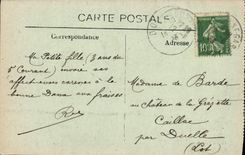 CARTE POSTALE
Correspondance
Adresse
Ma Petite fille (3 ans du
5 Courant) envoie ses
affectueuses caresses à la
bonne Dame aux fraises
Madame de Barde
au château de la Grézette
Caillac
par Duelle
(Lot)
10